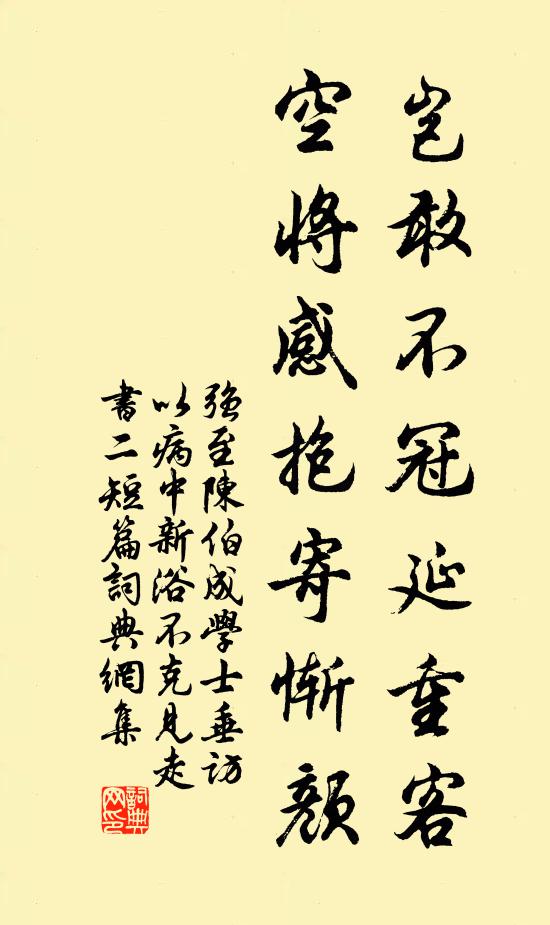 岂敢不冠延重客
空將感抱寄慚顏
強至陳伯成學士垂访
以病中新浴不克見走
書二短篇詞典網集
詞典
网印